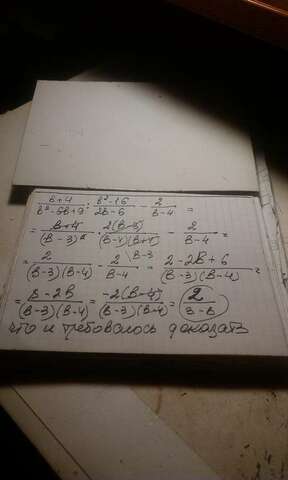 (в+4)/(в²-6в+9) : (в²-16)/(2в-6) - 2/(в-4) =
= (в+4)/(в-3)² · 2(в-3)/((в-4)(в+4)) - 2/(в-4) =
= 2/((в-3)(в-4)) - 2/(в-4) \в-3 = (2-2в+6)/((в-3)(в-4)) =
= (8-2в)/((в-3)(в-4)) = -2(в-4)/((в-3)(в-4)) = 2/(3-в)
что и требовалось доказать